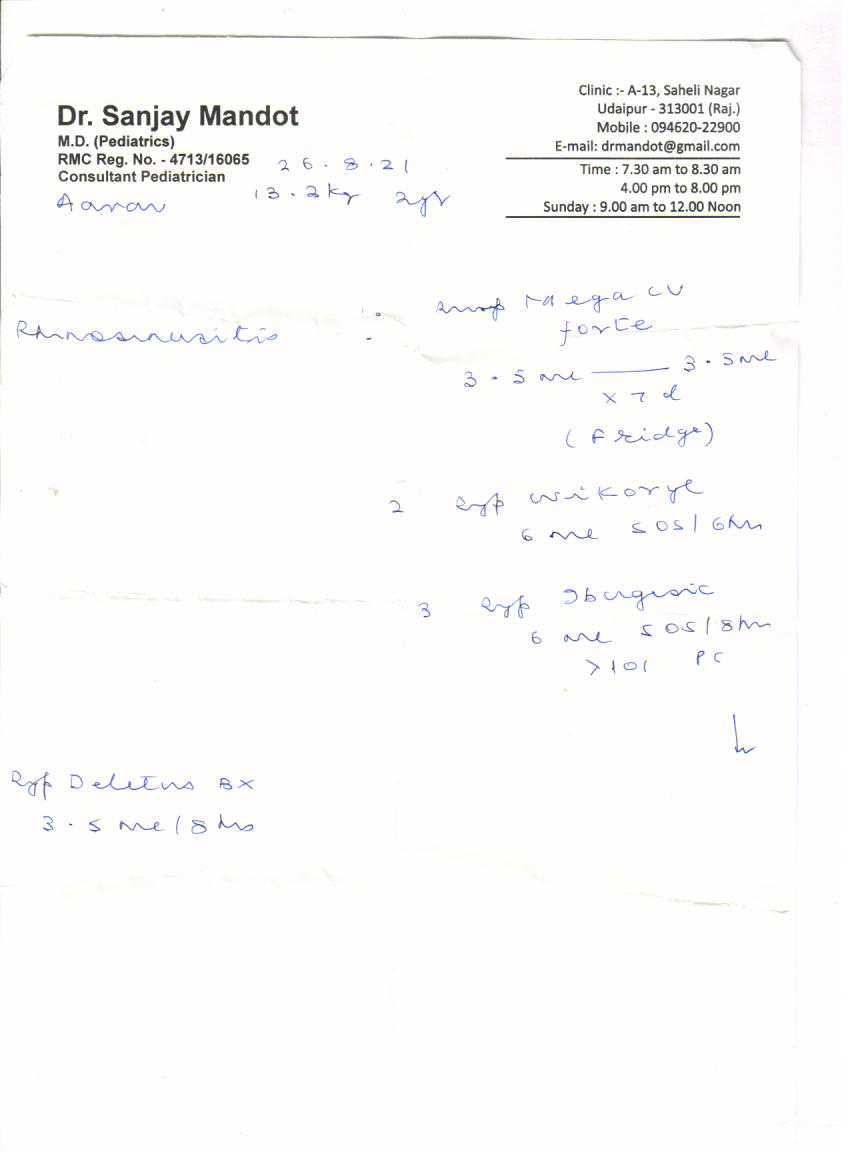 Dr. Sanjay Mandot
M.D. (Pediatrics)
RMC Reg. No. - 4713/16065
Consultant Pediatrician
Clinic :- A-13, Saheli Nagar
Udaipur - 313001 (Raj.)
Mobile : 094620-22900
E-mail: drmandot@gmail.com
Time : 7.30 am to 8.30 am
4.00 pm to 8.00 pm
Sunday : 9.00 am to 12.00 Noon
26.8.21
Aarav 13.2kg 2yr
Rhinosinusitis
Mega CV
forte
3.5 ml — 3.5 ml
x 7 d
(Fridge)
2 Syp Wikoryl
6 ml SOS/6hr
3 Syp Ibugesic
6 ml SOS/8hr
>101 PC
Syp Deletus BX
3.5 ml/8hrs